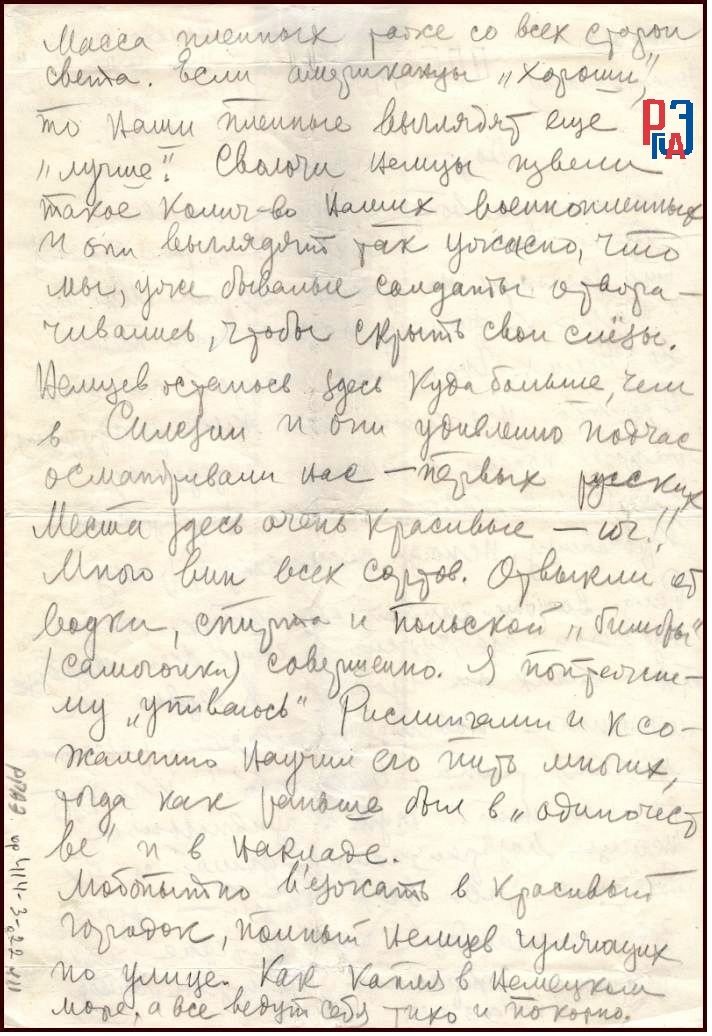 Масса пленных также со всех сторон
света. Если американцы „хороши",
то наши пленные выглядят еще
„лучше". Сволочи немцы извели
такое колич-во наших военнопленных
и они выглядят так ужасно, что
мы, уже бывалые солдаты отвора-
чивались, чтобы скрыть свои слёзы.
Немцев осталось здесь куда больше, чем
в Силезии и они удивленно подчас
осматривали нас — первых русских
Места здесь очень красивые — юг!!
Много вин всех сортов. Отвыкли от
водки, спирта и польской „бимбры"
(самогонки) совершенно. Я попрежне-
му „упиваюсь" Рислингами и к со-
жалению научил его пить многих,
тогда как раньше был в „одиночест
ве" и в накладе.
Любопытно въезжать в красивый
городок, полный немцев гуляющих
по улице. Как капля в немецком
море, а все ведут себя тихо и покорно.
РГАЭ